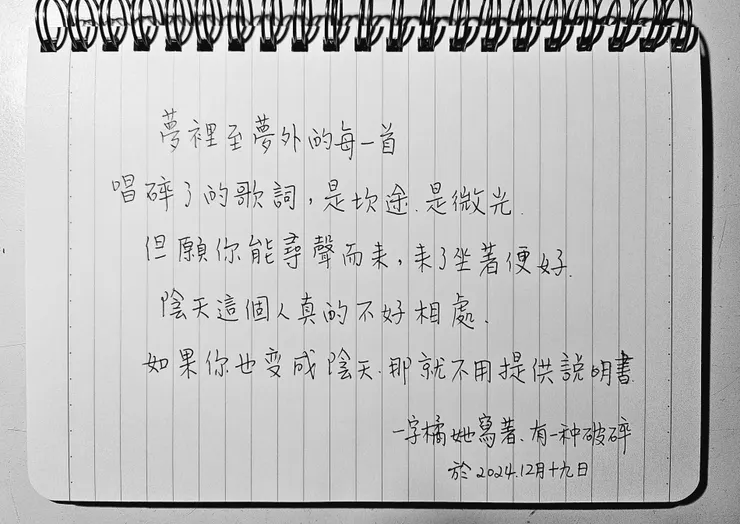 夢裡至夢外的每一首
唱碎了的歌詞,是坎途.是微光.
但願你能尋聲而来,来了坐著便好.
陰天這個人真的不好相處.
如果你也变成陰天.那就不用提供説明書.
一字橘她寫著.有一种破碎
於2024.12月十九日